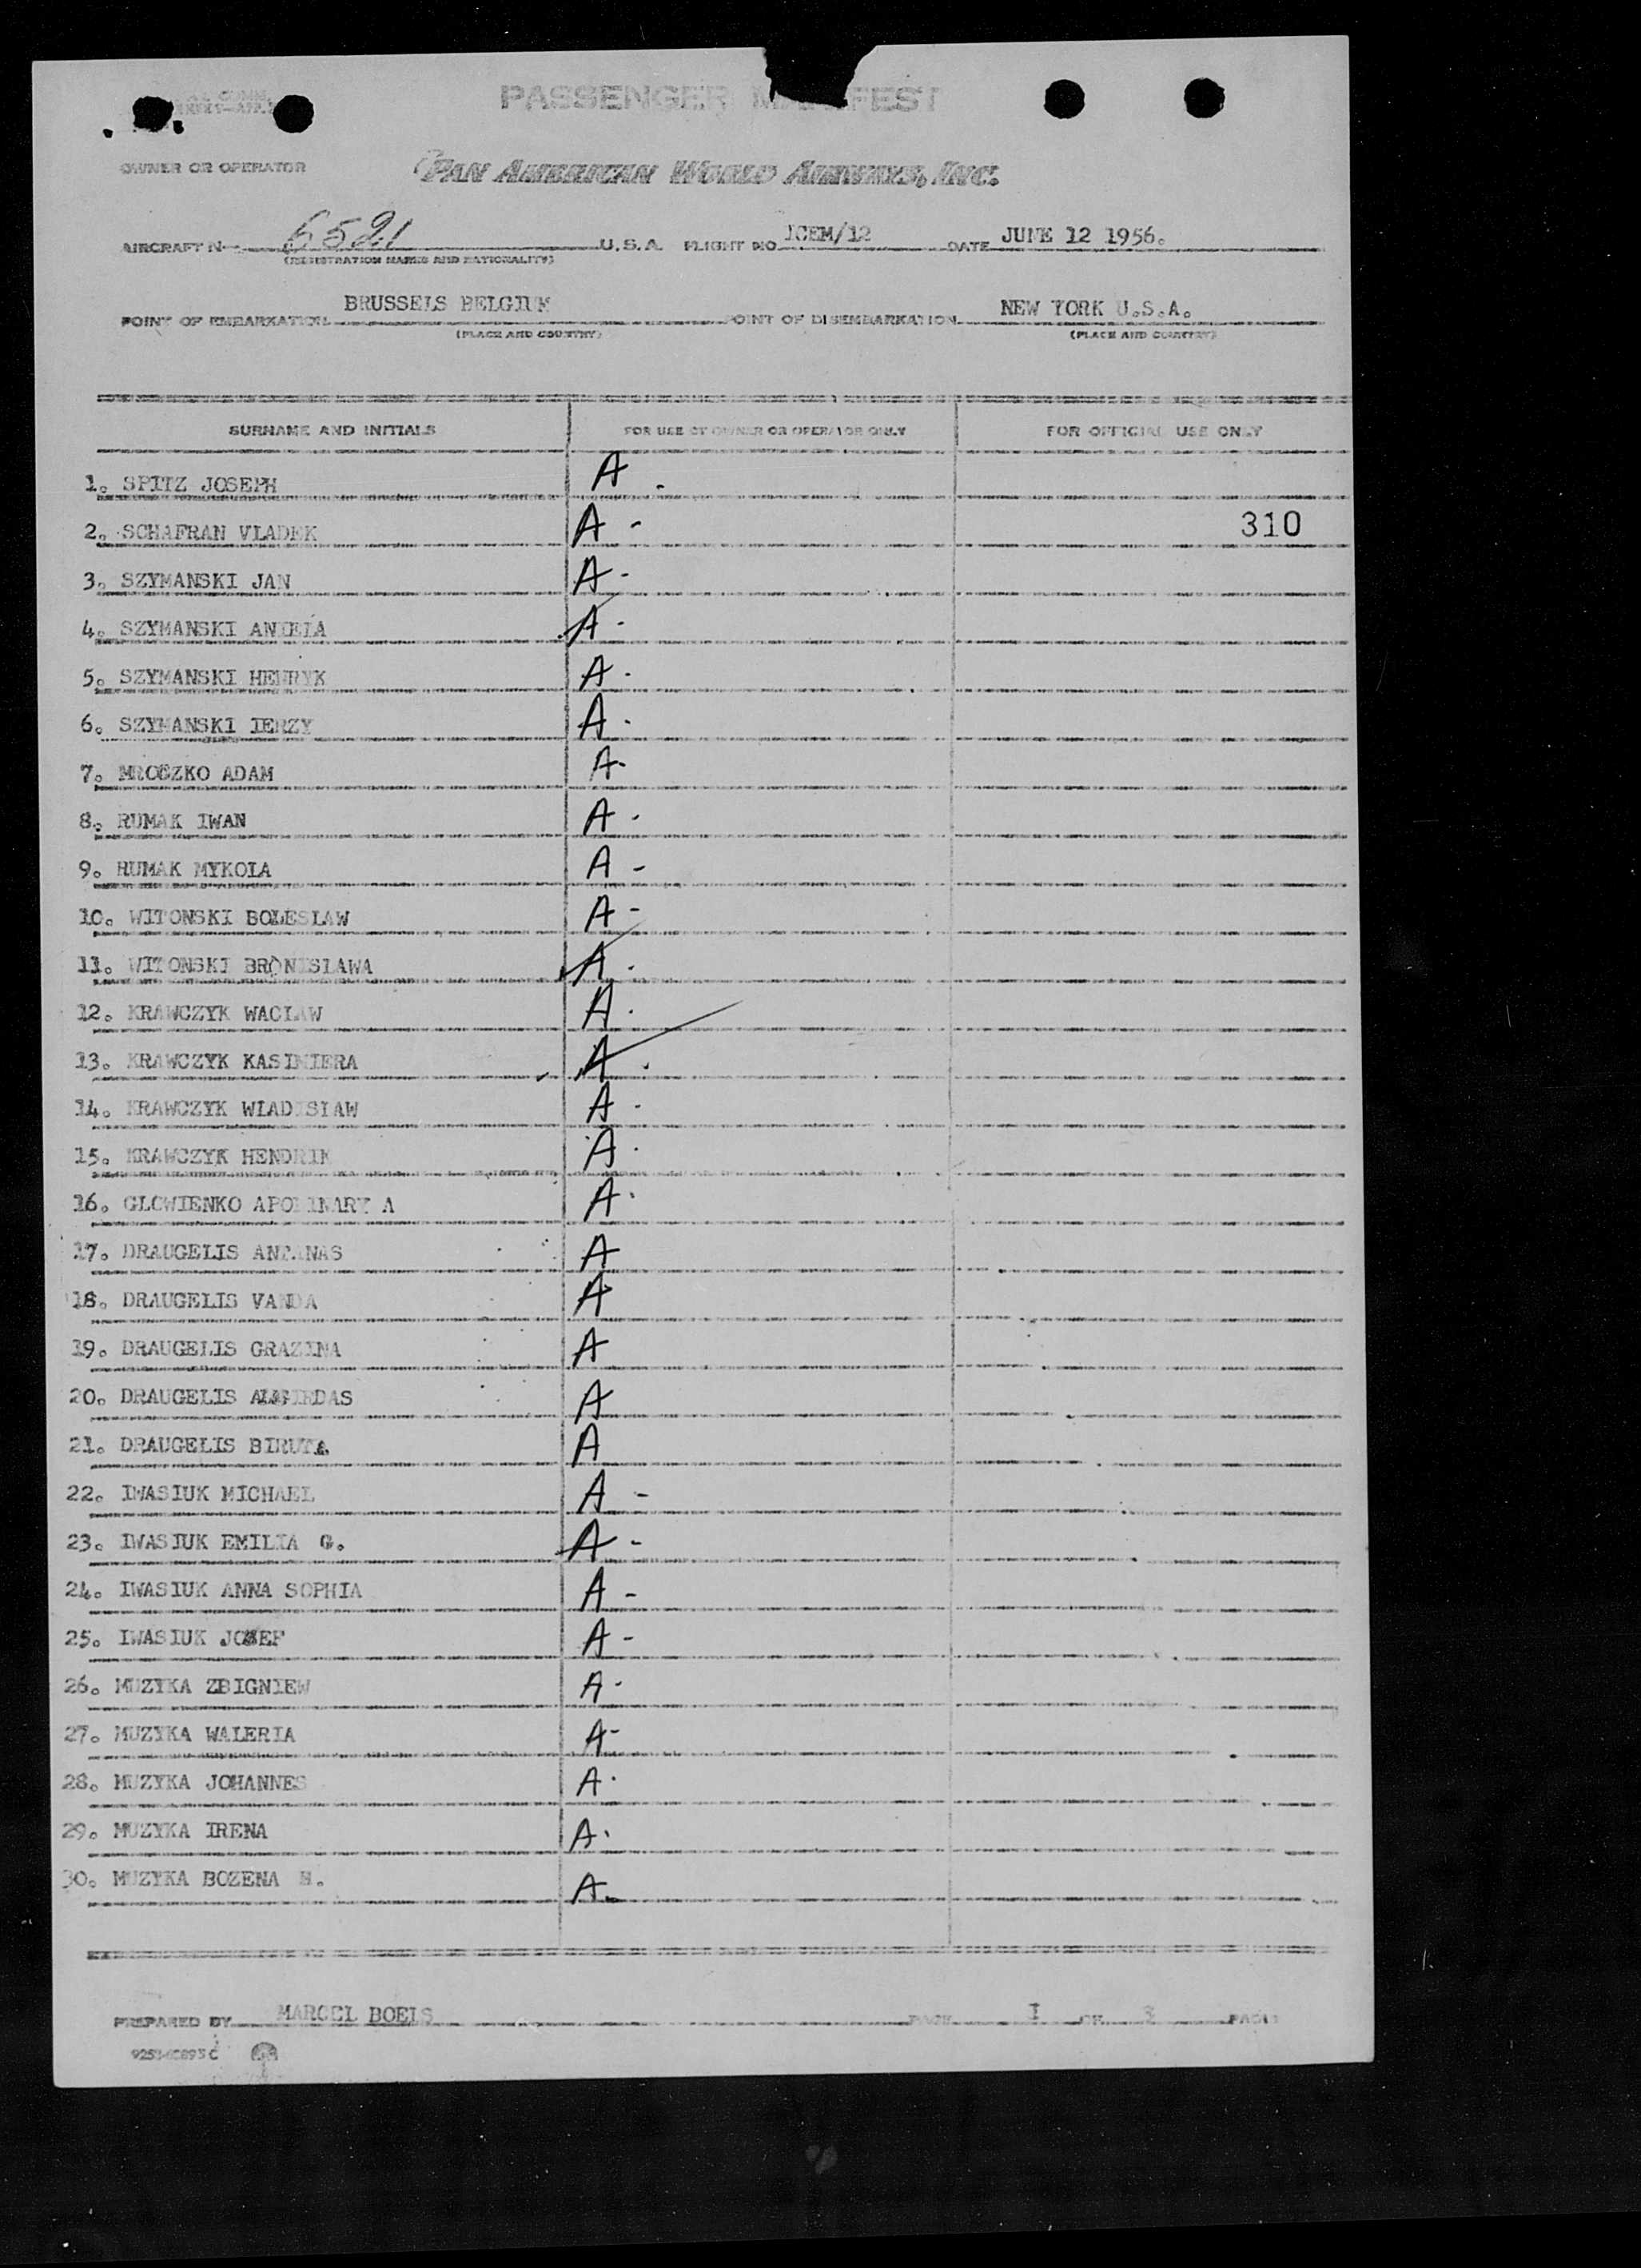 PASSENGER MANIFEST
OWNER OR OPERATOR PAN AMERICAN WORLD AIRWAYS, INC.
AIRCRAFT N 6521 U.S.A. FLIGHT NO. ICEM/12 DATE JUNE 12 1956.
(REGISTRATION MARKS AND NATIONALITY)
POINT OF EMBARKATION BRUSSELS BELGIUM POINT OF DISEMBARKATION NEW YORK U.S.A.
(PLACE AND COUNTRY) (PLACE AND COUNTRY)
SURNAME AND INITIALS FOR USE OF OWNER OR OPERATOR ONLY FOR OFFICIAL USE ONLY
1. SPITZ JOSEPH A
2. SCHAFRAN VLADEK A - 310
3. SZYMANSKI JAN A -
4. SZYMANSKI ANIELA A -
5. SZYMANSKI HENRYK A -
6. SZYMANSKI IERZY A -
7. MROCZKO ADAM A -
8. RUMAK IWAN A -
9. RUMAK MYKOLA A -
10. WITONSKI BOLESLAW A -
11. WITONSKI BRONISLAWA A -
12. KRAWCZYK WACLAW A -
13. KRAWCZYK KASIMIERA A -
14. KRAWCZYK WLADISLAW A -
15. KRAWCZYK HENDRIK A -
16. GLOWIENKO APOLINARY A A -
17. DRAUGELIS ANTANAS A
18. DRAUGELIS VANDA A
19. DRAUGELIS GRAZINA A
20. DRAUGELIS A
21. DRAUGELIS BIRUTA A
22. IWASIUK MICHAEL A -
23. IWASIUK EMILIA G. A -
24. IWASIUK ANNA SOPHIA A -
25. IWASIUK JOSEF A -
26. MUZYKA ZBIGNIEW A -
27. MUZYKA WALERIA A -
28. MUZYKA JOHANNES A -
29. MUZYKA IRENA A -
30. MUZYKA BOZENA A -
PREPARED BY MARCEL BOELS PAGE I OF 3 PAGES